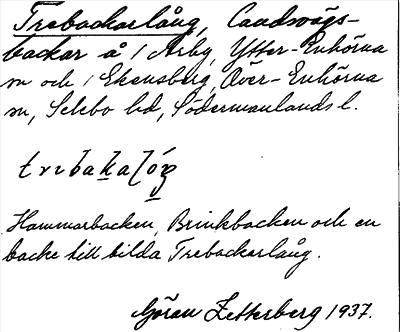 Trebackarlång, Landsvägs-
backar å / Arby, Ytter-Enhörna
sn och / Ekensberg, Över-Enhörna
sn, Selebo hd, Södermanlands l.
Hammarbacken, Brinkbacken och en
backe till bilda Trebackarlång.
Göran Zetterberg 1937.